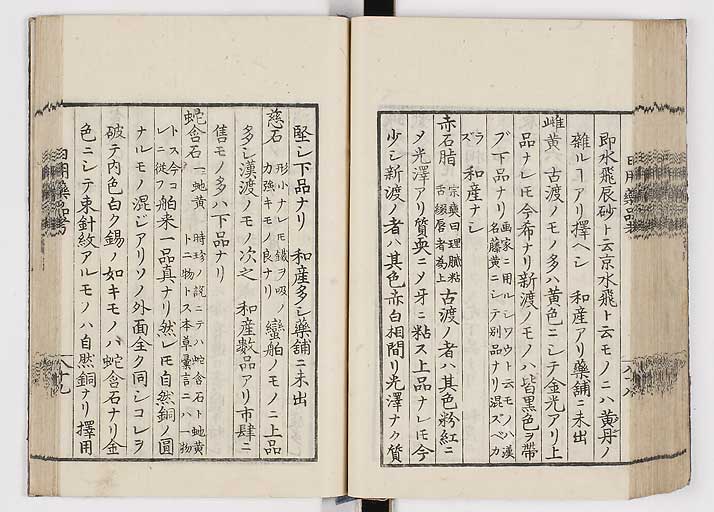 即水飛辰砂ト云京水飛ト云モノニハ黄丹ノ
雜ルヿアリ擇ヘシ　和産アリ藥舗ニ未出
雌黄　古渡ノモノ多ハ黄色ニシテ金光アリ上
品ナレ𪜈今希ナリ新渡ノモノハ皆黒色ヲ帶
ブ下品ナリ
画家ニ用ルシワウト云モノハ漢
名藤黄ニシテ別品ナリ混ズベカ
ラ
ズ
和産ナシ
赤石脂
宗奭曰理膩粘
舌綴唇者為上
古渡ノ者ハ其色粉紅ニ
〆光澤アリ質耎ニ〆牙ニ粘ス上品ナレ𪜈今
少シ新渡ノ者ハ其色赤白相間リ光澤ナク質
堅シ下品ナリ　和産多シ藥舗ニ未出
慈石
形小ナレ𪜈鐵ヲ吸ノ
力強キモノ良ナリ
蠻舶ノモノニ上品
多シ漢渡ノモノ次之　和産數品アリ市肆ニ
售モノ多ハ下品ナリ
蛇含石
一蚰黄　時珍ノ説ニテハ蛇含石ト蚰黄
ト二物トス本草彙言ニハ一物
トス今コ
レニ從フ
舶来一品真ナリ然レ𪜈自然銅ノ圓
ナルモノ混ジアリソノ外面全ク同シコレヲ
破テ内色白ク錫ノ如キモノハ蛇含石ナリ金
色ニシテ束針紋アルモノハ自然銅ナリ擇用
日用藥品考
八十九